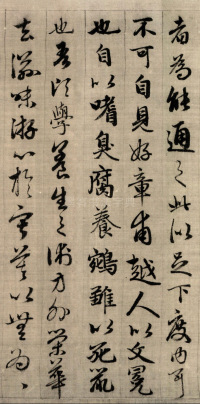 者為能通之此似足下度內耳
不可自見好章甫越人以文冕
也自以嗜臭腐養鵷雛以死鼠
也吾頃學養生之術方外榮華
去滋味游心於寂莫以無為